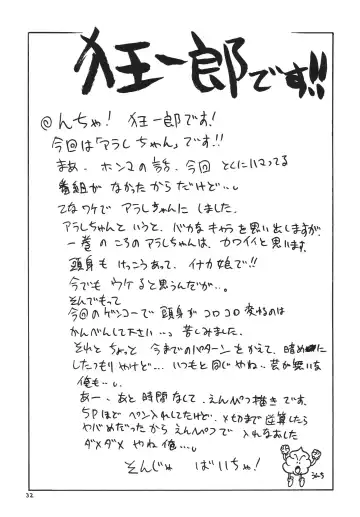 狂一郎です!!
@んちゃ! 狂一郎です!
今回は「アラレちゃん」です!!
まあ、ホンマの話、今回 とくにハマってる
番組が なかったからだけど…。
てなワケで アラレちゃんに しました。
アラレちゃんと いうと、バカな キャラを 思い出しますが
一巻の ころの アラレちゃんは、カワイイと 思います。
頭身も けっこうあって、イナカ娘で!!
今でも ウケると思うんだが…。
そんでもって
今回のゲンコーで 頭身が コロコロ 変わるのは
かんべんして下さい…。 苦しみました。
それと ちょっと 今までのパターン を かえて、暗めに
したつもり やけど… いつもと同じ やね。芸が無いな
俺も…。
あー、あと 時間なくて、えんぴつ描き です。
5Pほど ペン入れしてたけど、〆切まで 逆算したら
ヤバめだったから えんぴつで 入れなおした
ダメダメ やね 俺…。
そんじゃ ばいちゃ!
32